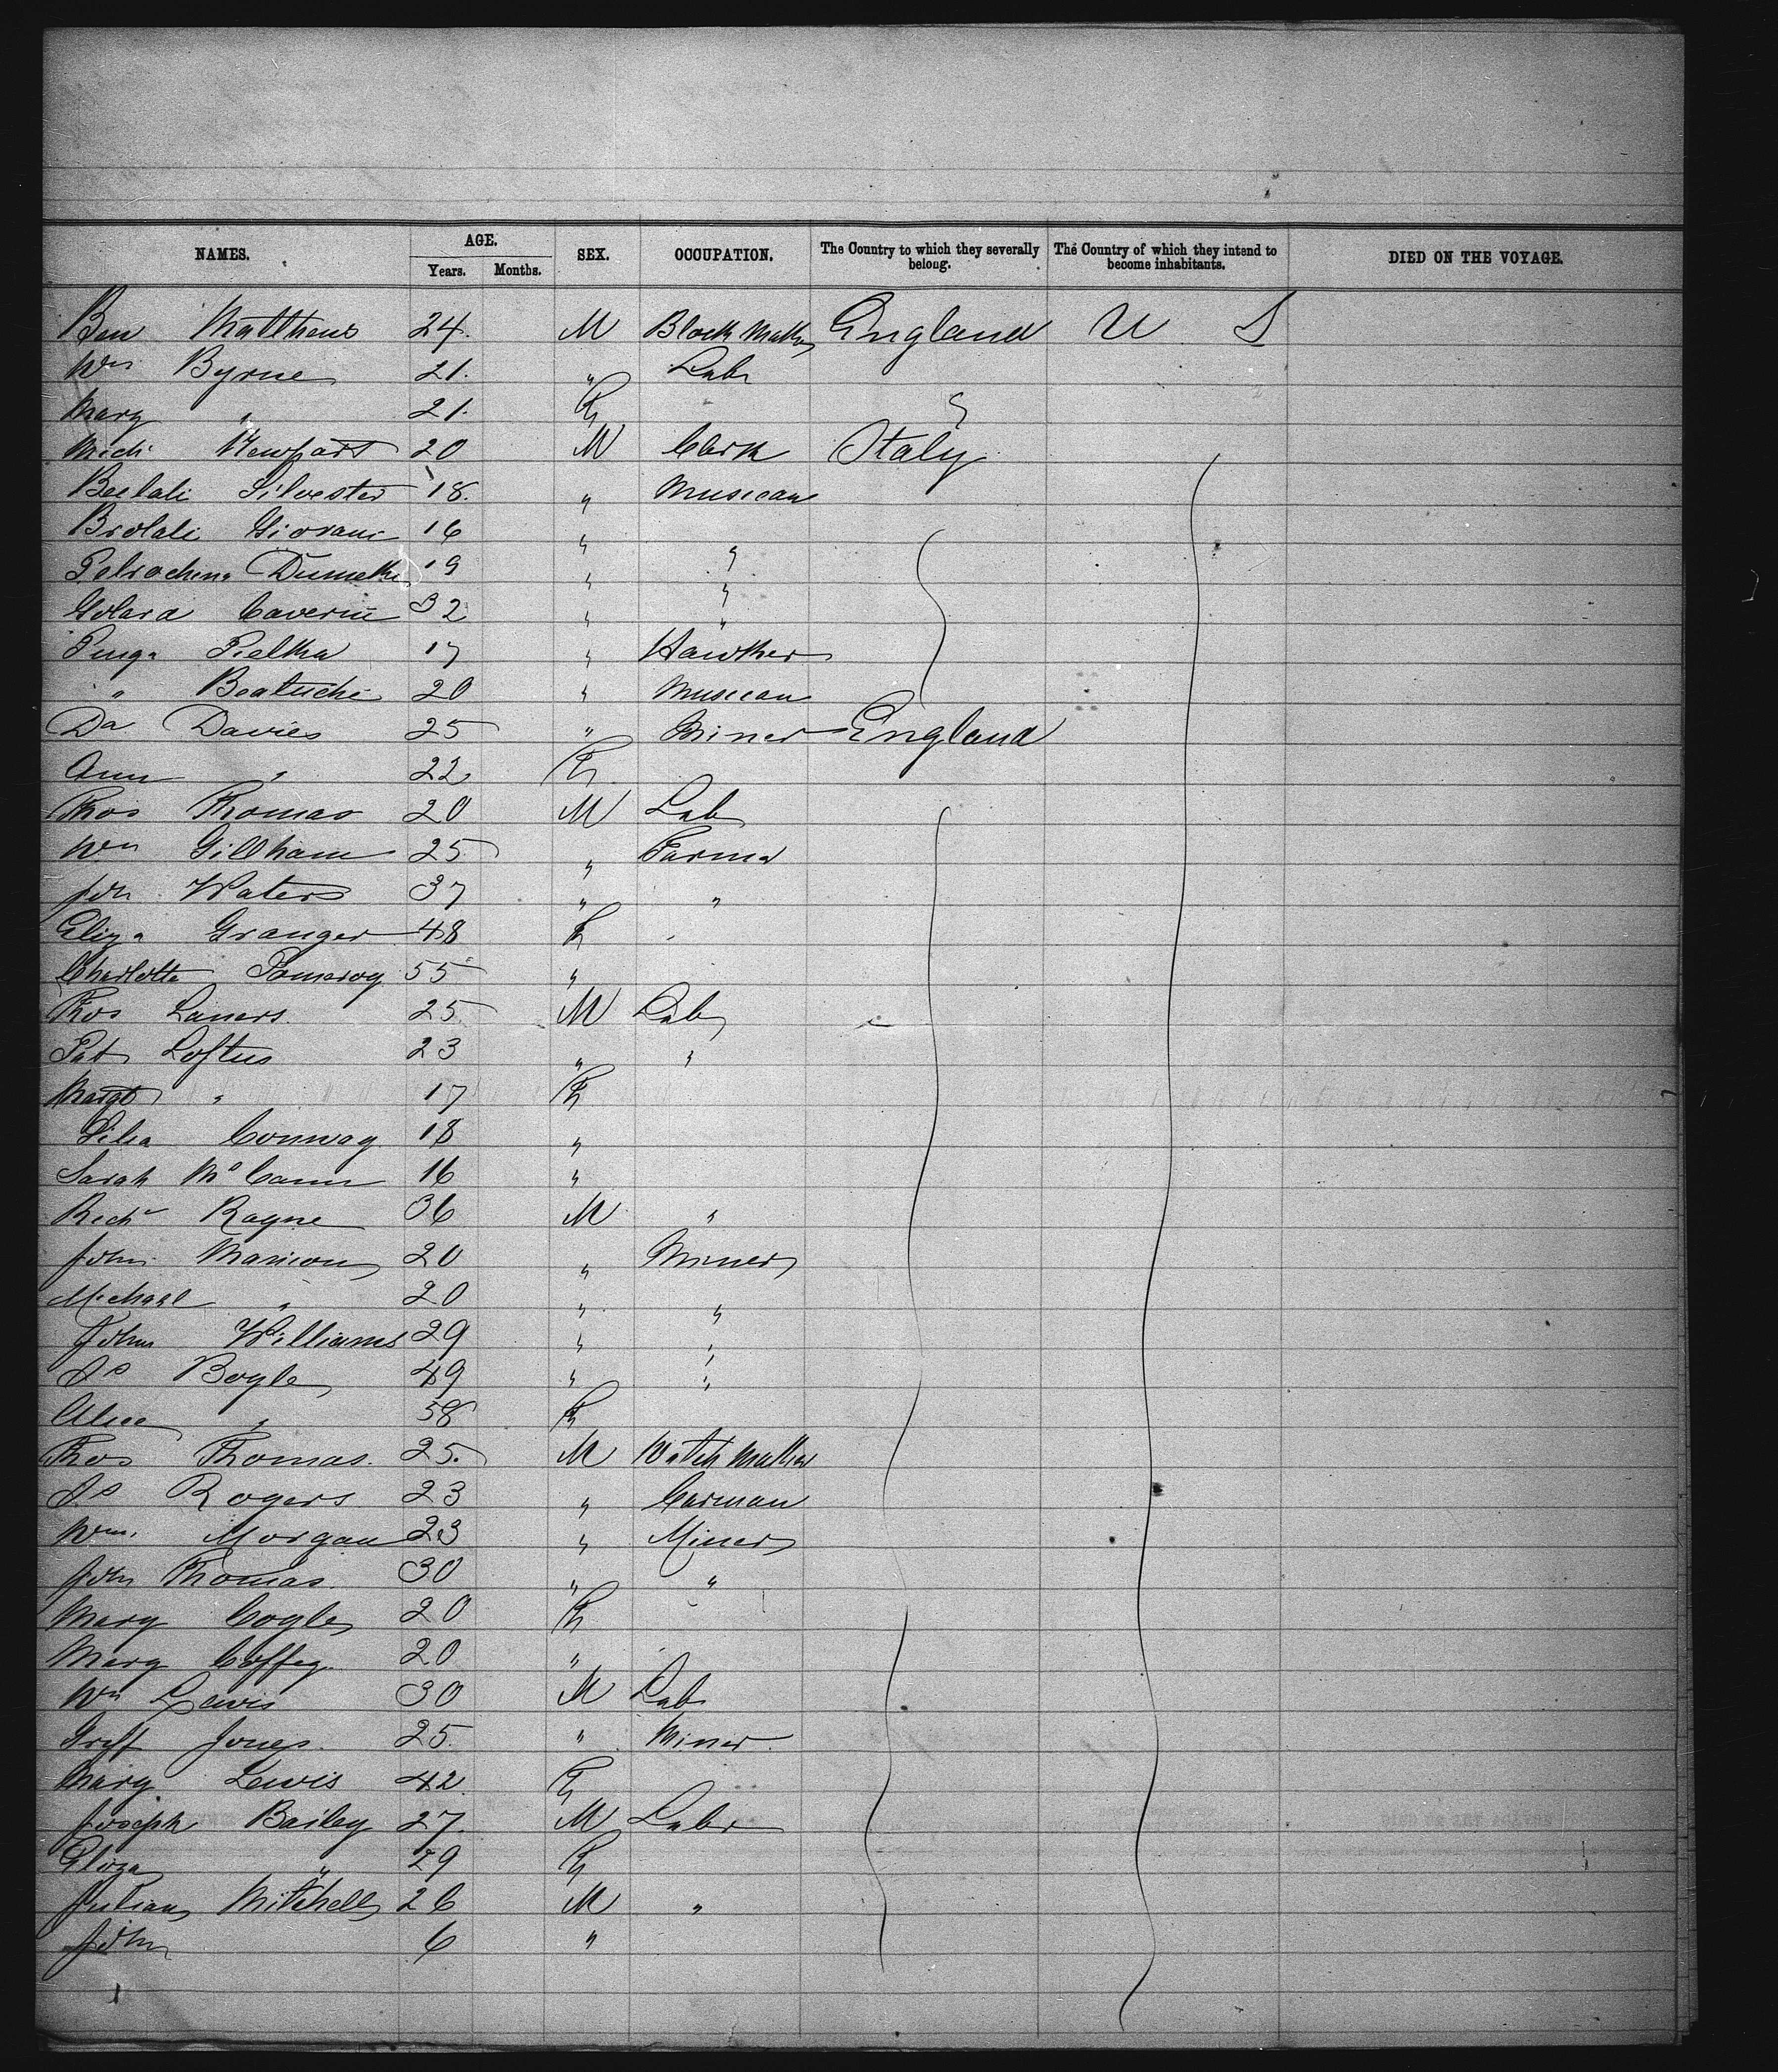 NAMES. AGE. SEX. OCCUPATION. The Country to which they severally belong. The Country of which they intend to become inhabitants. DIED ON THE VOYAGE.
Years. Months.
Ben Matthews 24. M England U S
Wm Byrne 21. " Labr
Mary " 21. F "
Mich Newhart 20 M Clerk Italy
Silvester 18. " Musican
Giovani 16 " "
19 " "
Caverini 32 " "
17 " Hawker
" Beatuchi 20 " Musican
Da Davies 25 " Miner England
Ann " 22. F
Thos Thomas 20 M Lab
Wm Gillham 25 " Farmer
Jon Waters 37 " "
Eliza Granger 48 F
Charlotte Pomeroy 55 "
Thos Laners 25 M Lab
Pat Loftus 23 " "
Margt " 17 F
Conway 18 "
Sarah McCann 16 "
Richd Rayne 36 M "
John 20 " Miner
Michael " 20 " "
John Williams 29 " "
Js Boyle 49 " "
Alice " 58 F
Thos Thomas. 25. M Watch Maker
Js Rogers 23 " Carman
Wm. Morgan 23 " Miner
John Thomas. 30 " "
Mary Coyle 20 F
Mary Coffey 20 "
Wm Lewis 30 M Lab
Griff Jones. 25. " Miner
Mary Lewis 42 F
Joseph Bailey 27. M Labr
Eliza " 29 F
Mitchell 26 M "
John 6 "